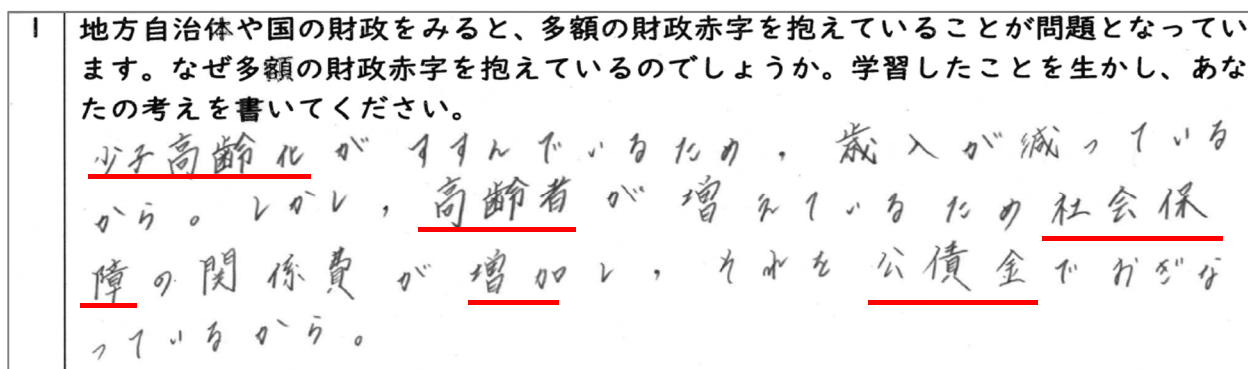 1 地方自治体や国の財政をみると、多額の財政赤字を抱えていることが問題となってい
ます。なぜ多額の財政赤字を抱えているのでしょうか。学習したことを生かし、あな
たの考えを書いてください。
少子高齢化がすすんでいるため、歳入が減っている
から。しかし、高齢者が増えているため社会保
障の関係費が増加し、それを公債金でおぎな
っているから。